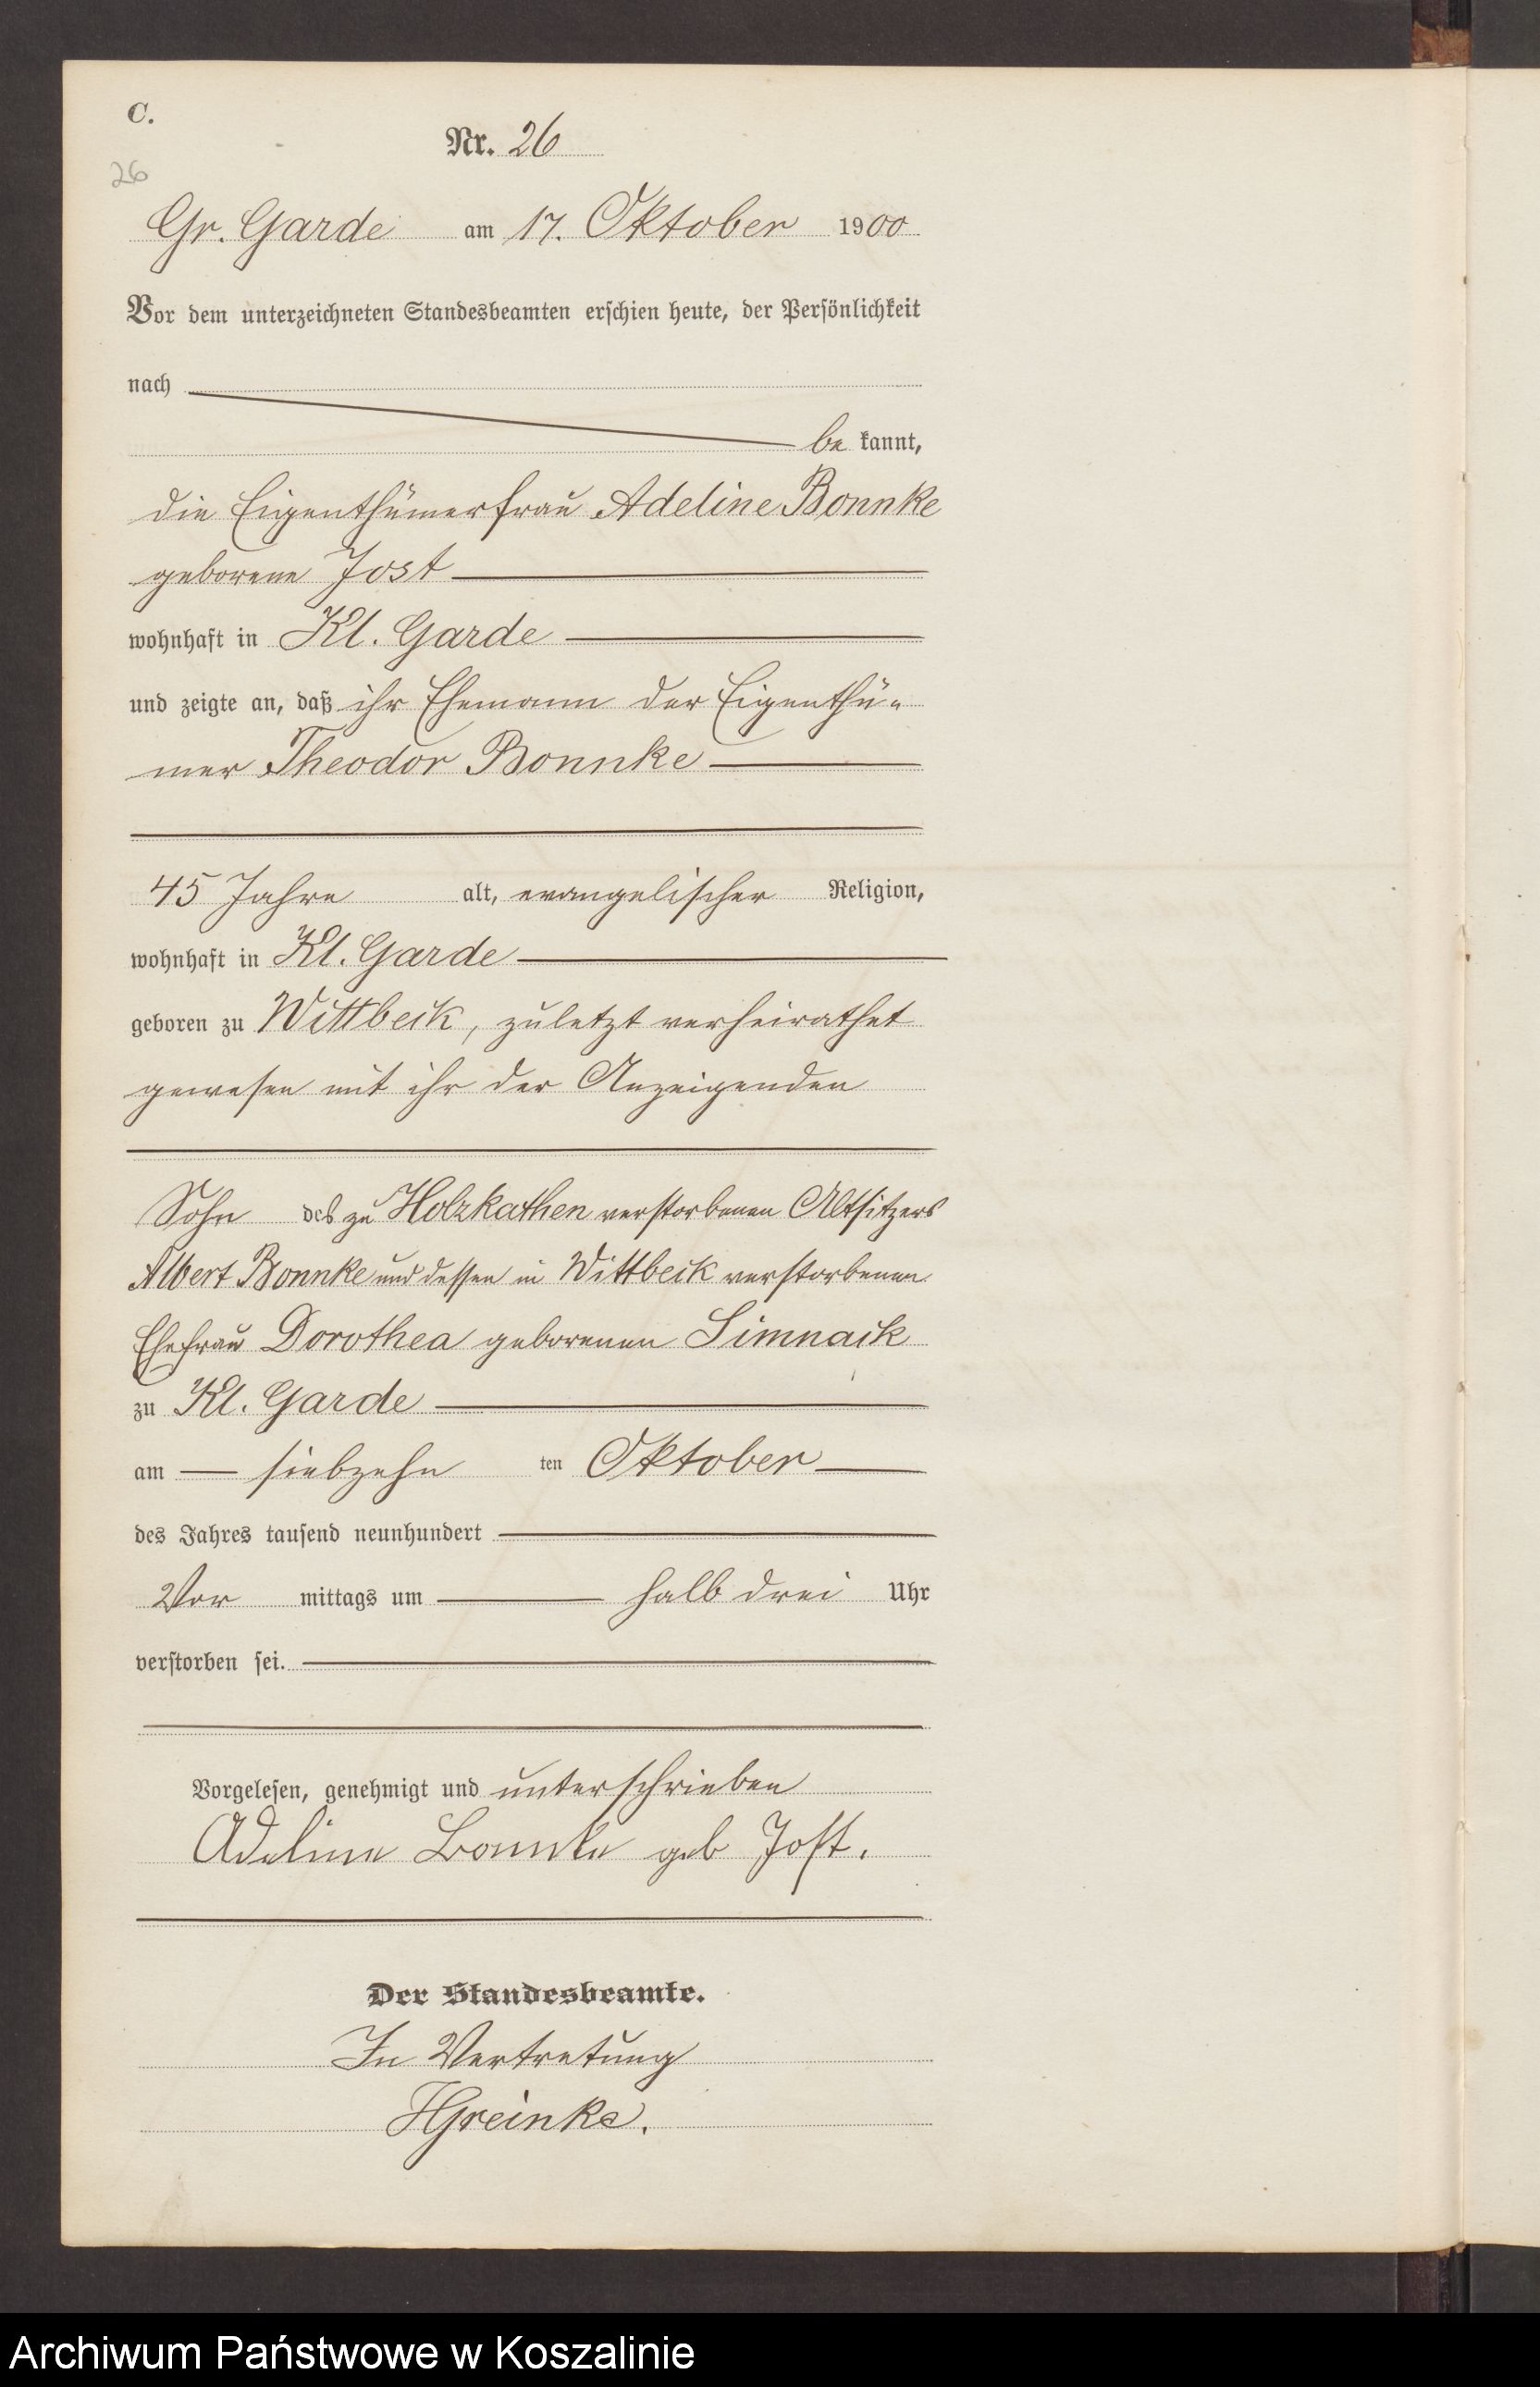 C.
Nr. 26
26
Gr. Garde am 17. Oktober 1900
Vor dem unterzeichneten Standesbeamten erschien heute, der Persönlichkeit
nach
be kannt,
die Eigenthümerfrau Adeline Bonnke
geborene Jost
wohnhaft in Kl. Garde
und zeigte an, daß ihr Ehemann der Eigenthü-
mer Theodor Bonnke
45 Jahre alt, evangelischer Religion,
wohnhaft in Kl. Garde
geboren zu Wittbeck, zuletzt verheirathet
gewesen mit ihr der Anzeigenden
Sohn des zu Holzkathen verstorbenen Altsitzers
Albert Bonnke und dessen in Wittbeck verstorbenen
Ehefrau Dorothea geborenen Simnack
zu Kl. Garde
am siebzehn ten Oktober
des Jahres tausend neunhundert
Vor mittags um halb drei Uhr
verstorben sei.
Vorgelesen, genehmigt und unterschrieben
Adeline Bonnke geb Jost.
Der Standesbeamte.
In Vertretung
HGreinke.
Archiwum Państwowe w Koszalinie